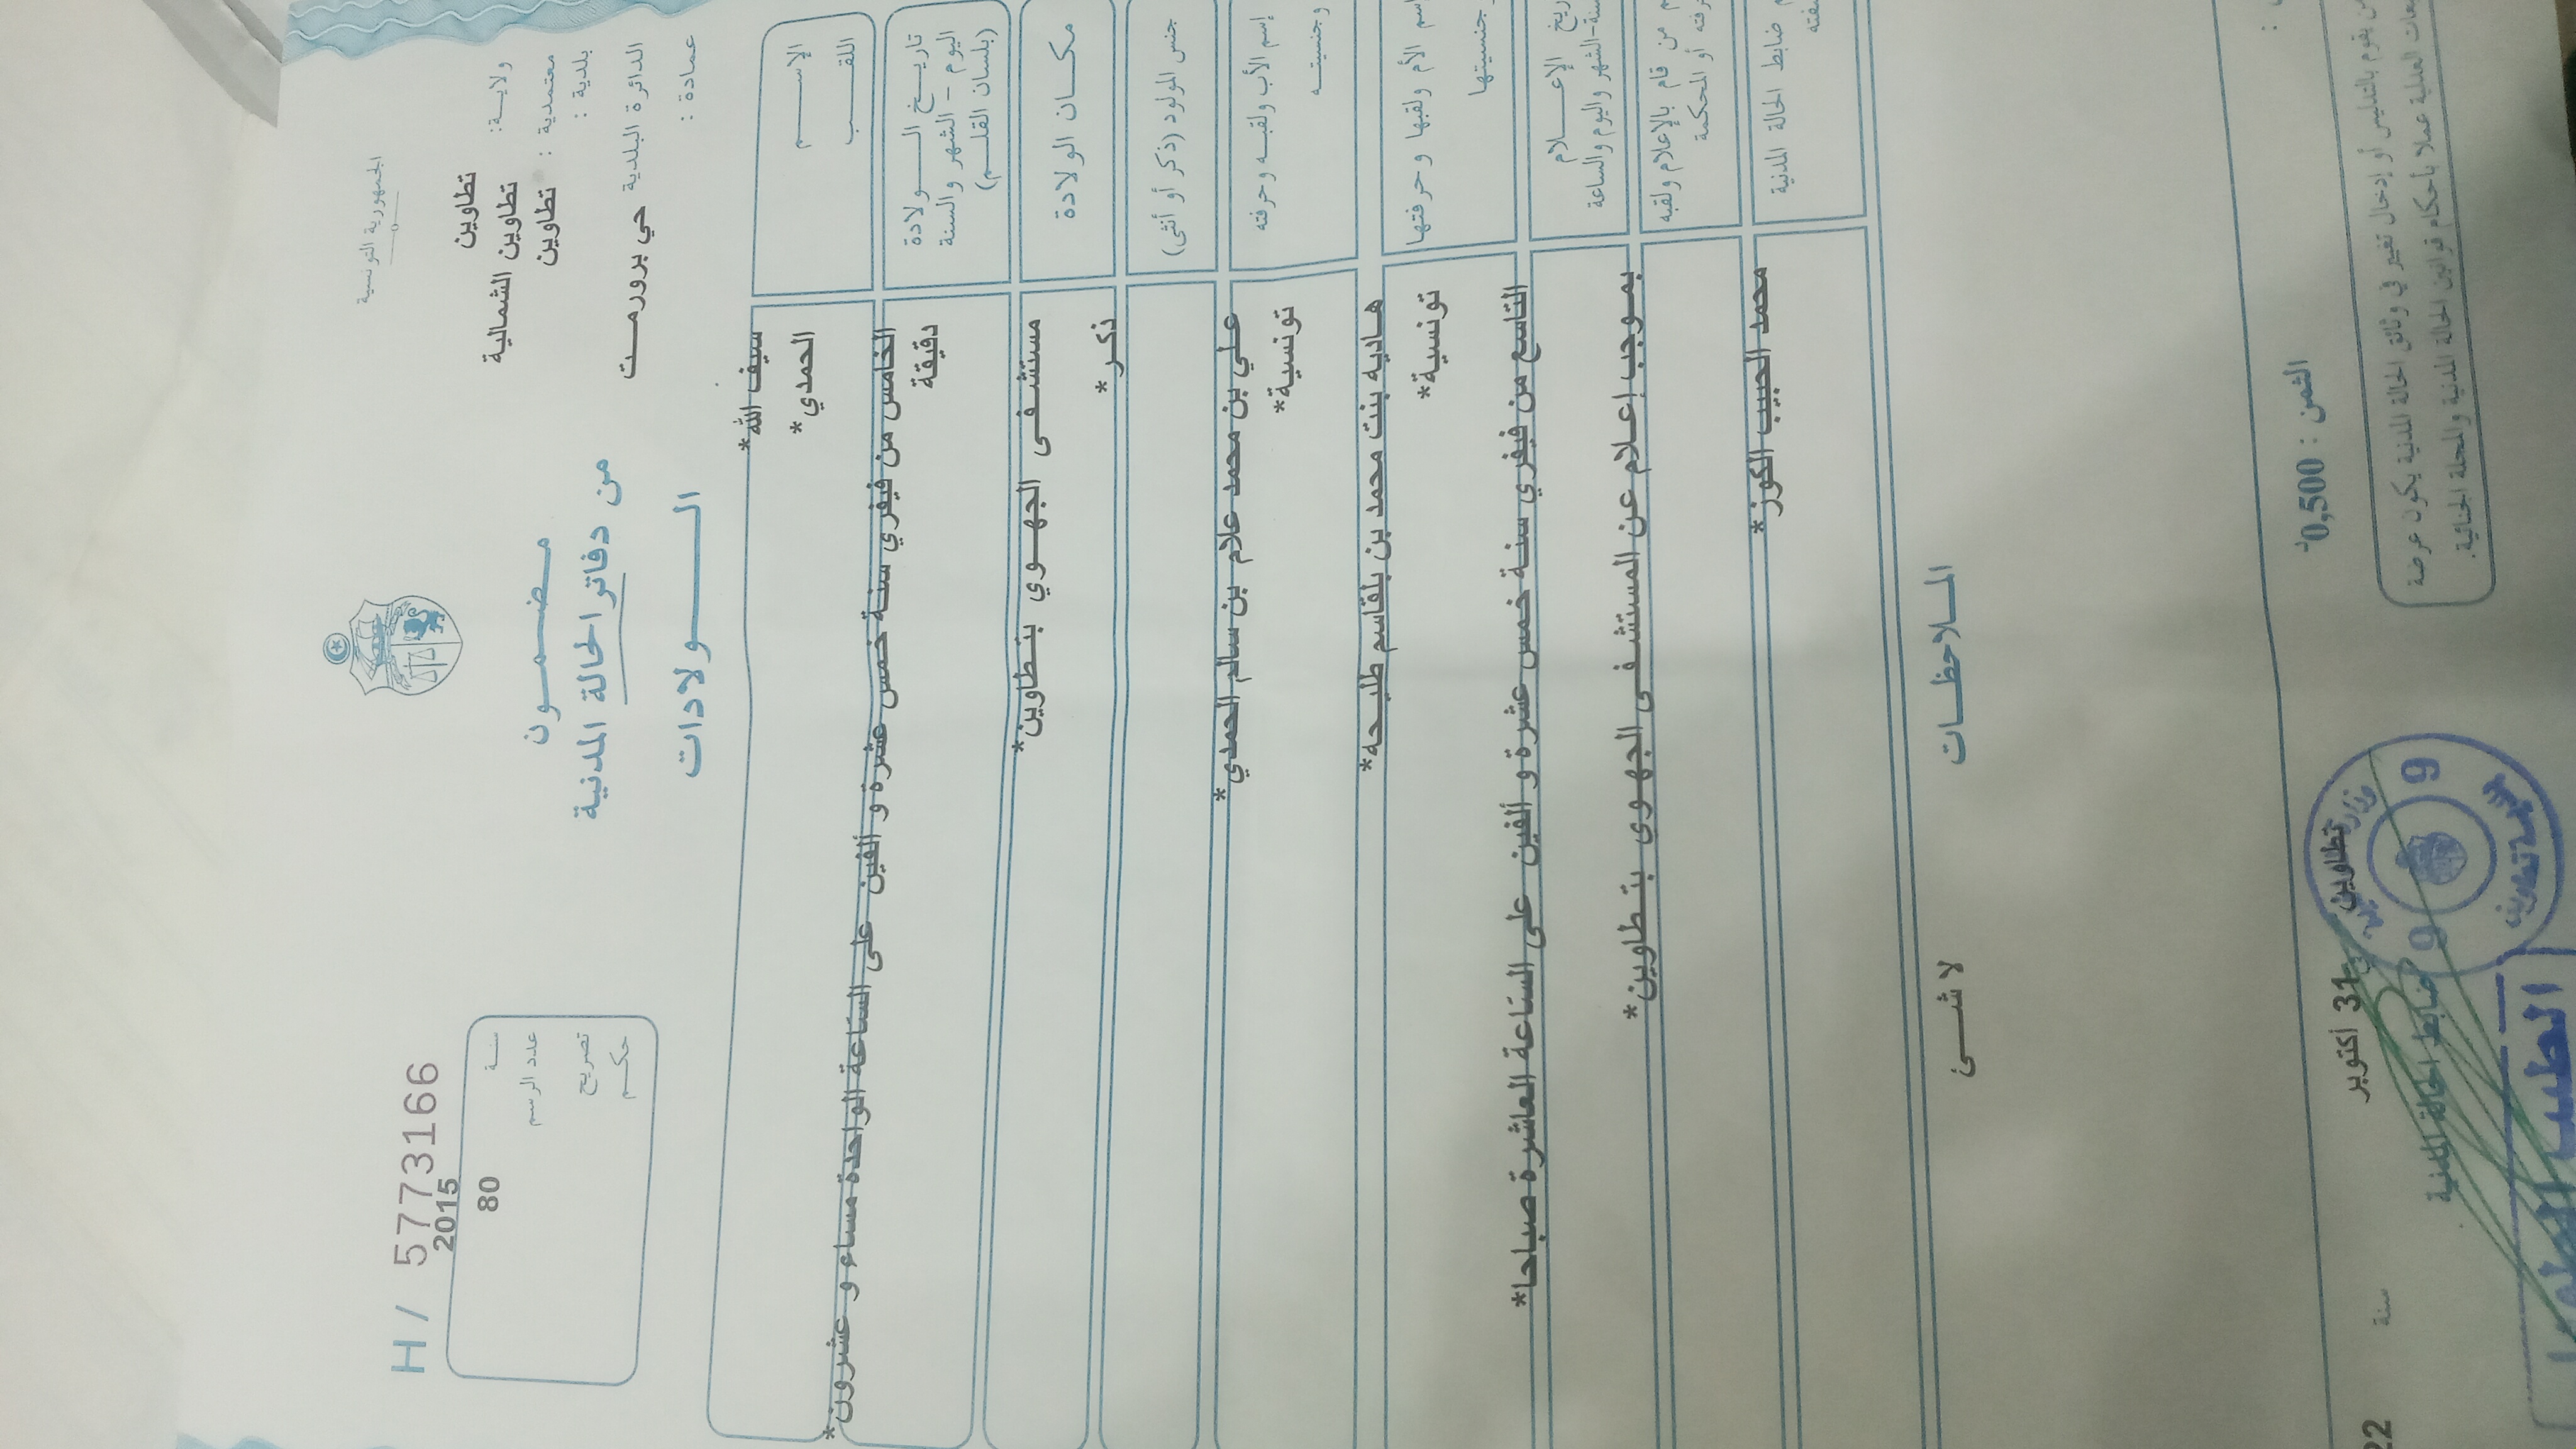 الجمهورية التونسية
ولاية: تطاوين
معتمدية : تطاوين الشمالية
بلدية : تطاوين
الدائرة البلدية حي برورمت
عمادة :
مضمون
من دفاتر الحالة المدنية
الولادات
H / 5773166
سنة 2015
عدد الرسم 80
تصريح
حكم
الإسم سيف الله*
اللقب الحمدي*
تاريخ الولادة
اليوم - الشهر والسنة
(بلسان القلم)
الخامس من فيفري سنة خمس عشرة و ألفين على الساعة الواحدة مساء و عشرون*
دقيقة
مكان الولادة مستشفى الجهوي بتطاوين*
جنس المولود (ذكر أو أنثى) ذكر*
إسم الأب ولقبه وحرفته علي بن محمد علام بن سالم الحمدي*
وجنسيته تونسية*
اسم الأم ولقبها وحرفتها هاديه بنت محمد بن بلقاسم طليحه*
وجنسيتها تونسية*
الإعلام
والشهر واليوم والساعة
التاسع من فيفري سنة خمس عشرة و ألفين على الساعة العاشرة صباحا*
من قام بالإعلام ولقبه
أو المحكمة
بموجب إعلام عن المستشفى الجهوي بتطاوين*
ضابط الحالة المدنية محمد الحبيب الكوز*
الملاحظات
لا شيء
الثمن : 0,500د
يقوم بالتدليس أو إدخال تغيير في وثائق الحالة المدنية يكون عرضة
العدلية عملا بأحكام قوانين الحالة المدنية والمجلة الجنائية.
تطاوين في 31 أكتوبر سنة 22
ضابط الحالة المدنية
9 9
الطيب